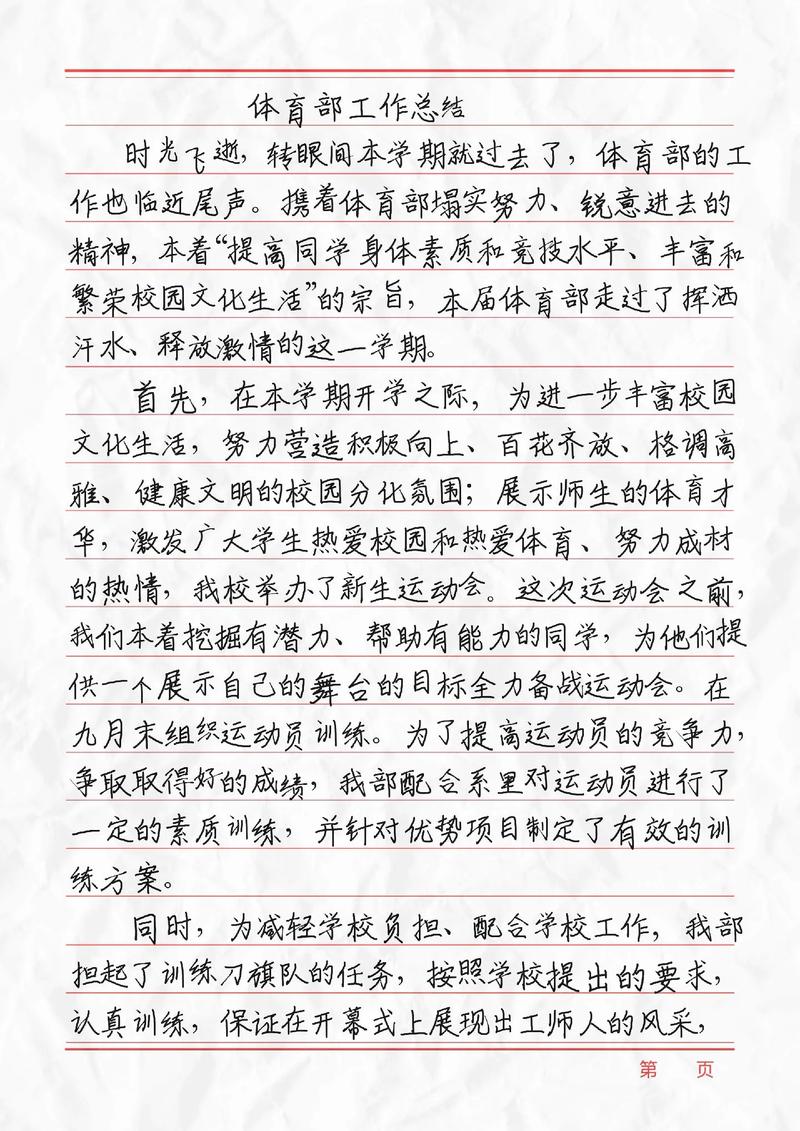 体育部工作总结
时光飞逝，转眼间本学期就过去了，体育部的工
作也临近尾声。携着体育部塌实努力、锐意进去的
精神，本着“提高同学身体素质和竞技水平、丰富和
繁荣校园文化生活”的宗旨，本届体育部走过了挥洒
汗水、释放激情的这一学期。
首先，在本学期开学之际，为进一步丰富校园
文化生活，努力营造积极向上、百花齐放、格调高
雅、健康文明的校园分化氛围；展示师生的体育才
华，激发广大学生热爱校园和热爱体育、努力成材
的热情，我校举办了新生运动会。这次运动会之前，
我们本着挖掘有潜力、帮助有能力的同学，为他们提
供一个展示自己的舞台的目标全力备战运动会。在
九月末组织运动员训练。为了提高运动员的竞争力，
争取取得好的成绩，我部配合系里对运动员进行了
一定的素质训练，并针对优势项目制定了有效的训
练方案。
同时，为减轻学校负担、配合学校工作，我部
担起了训练刀旗队的任务，按照学校提出的要求，
认真训练，保证在开幕式上展现出工师人的风采，
第 页